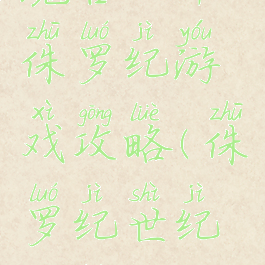 zhū luó jì yóu
侏罗纪游
xì gōng lüè zhū
戏攻略(侏
luó jì shì jì
罗纪世纪